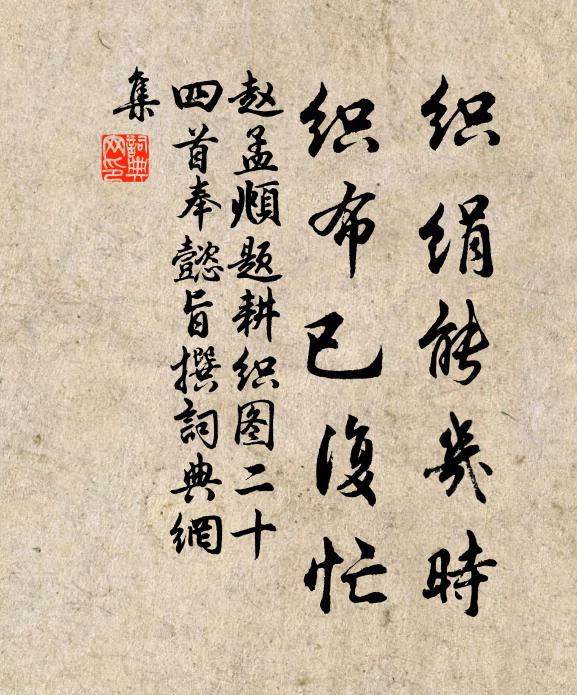 织绢能几時
织布已復忙
赵孟頫题耕织图二十
四首奉懿旨撰詞典網
集
詞典
网印